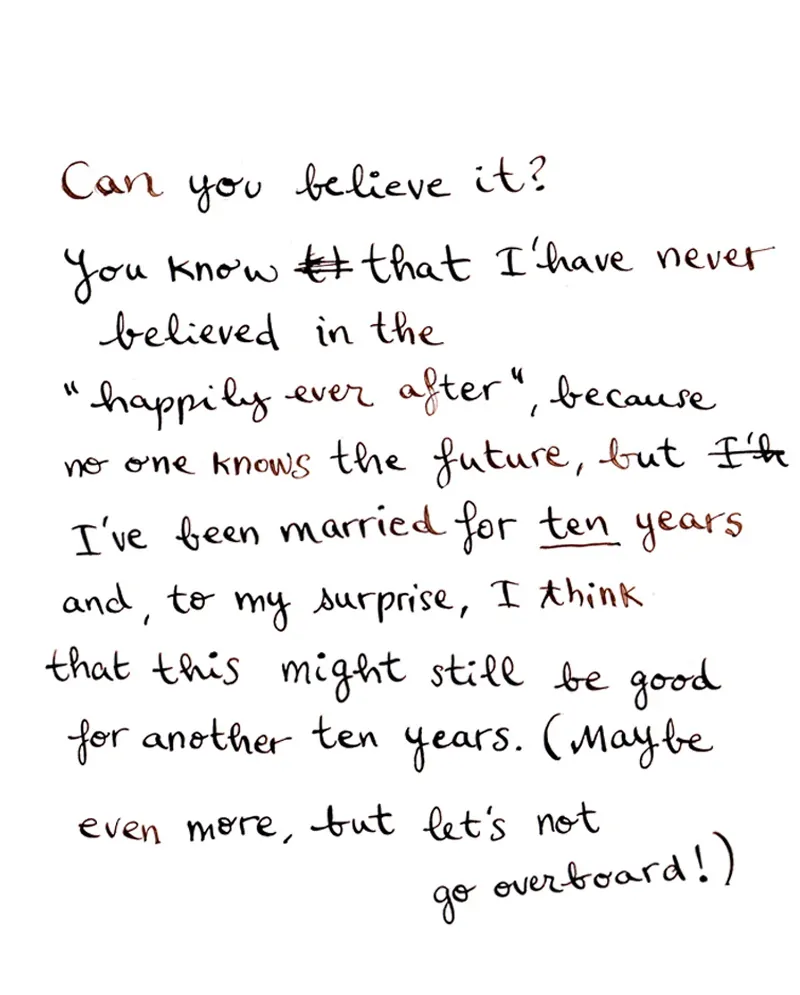 Can you believe it?
You know tt that I'have never
believed in the
"happily ever after", because
no one knows the future, but I'h
I've been married for ten years
and, to my surprise, I think
that this might still be good
for another ten years. (Maybe
even more, but let's not
go overboard!)